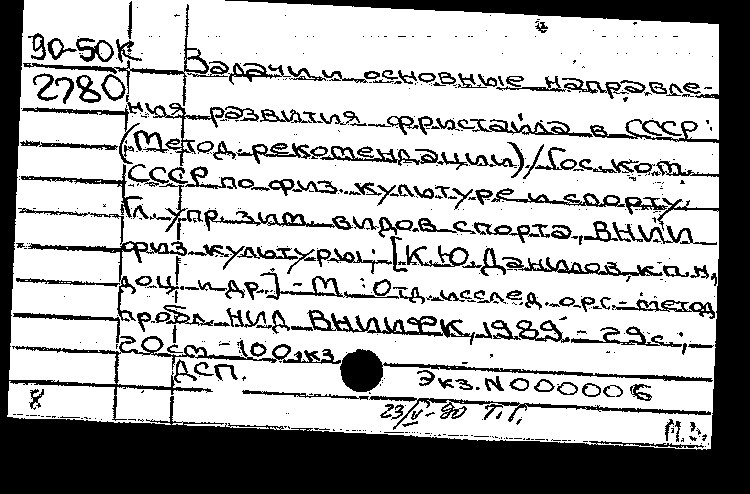 90-50К
2780
Задачи и основные направле-
ния развития фристайла в СССР:
(Метод. рекомендации) / Гос. ком.
СССР по физ. культуре и спорту,
Гл. упр. зим. видов спорта, ВНИИ
физ. культуры; [К.Ю. Данилов, к.п.н.,
доц. и др.] - М. : Отд. исслед. орг.-метод.
пробл. НИД ВНИИФК, 1989. - 29 с.;
20 см - 100 экз.
ДСП. Экз. N 000006
8 23/V-90 Т.Г.
М.З.